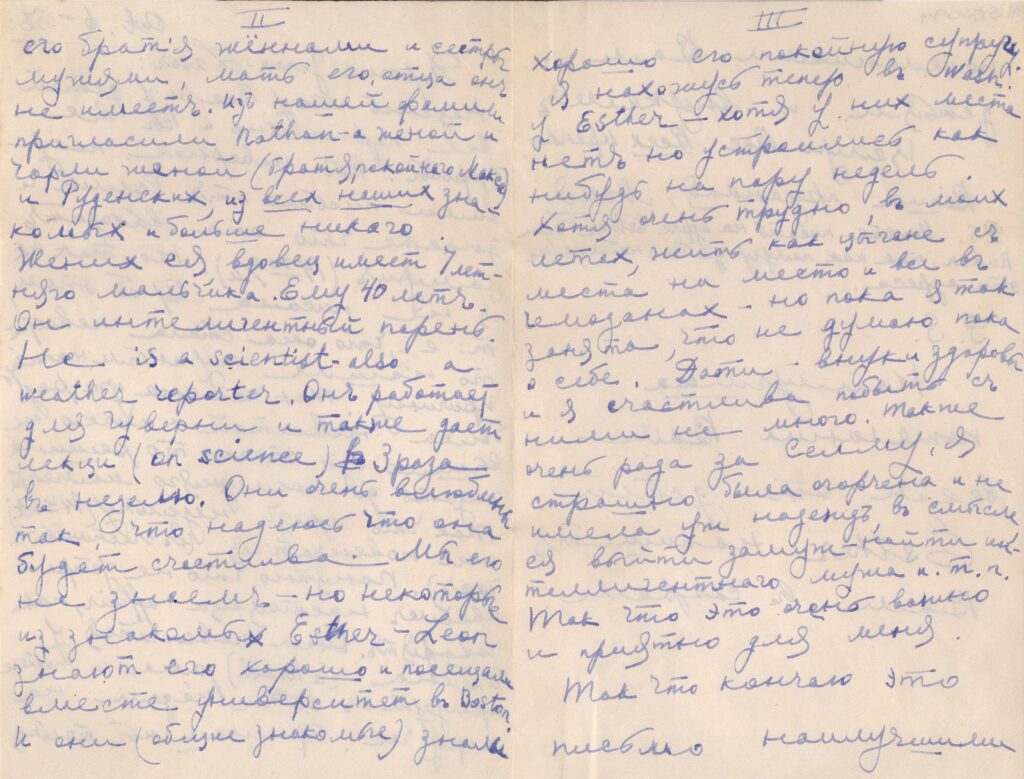 II
его братья жённами и сестры
мужями, мать его, отца онъ
не имеетъ. Изъ нашей фамили
пригласили Nathan-а женой и
Чарли женой (братя покойного Макса)
и Руденских, из всех наших зна-
комых и больше никаго.
Жених ея вдовец имеет 7 лет-
няго мальчика. Ему 40 летъ.
Он интелигентный парень.
He is a scientist - also a
weather reporter. Онъ работает
для гуверни и также дает
лекци (on science) 3 раза
въ неделю. Они очень влюблены
так, что надеюсь что она
будет счастлива. Мы его
не знаемъ – но некоторые
из знакомых Esther – Leon
знают его хорошо и посещали
вместе университет въ Boston.
И они (общие знакомые) знали
III
хорошо его покойную супругу.
Я нахожусь теперь въ Wash.
у Esther – хотя у них места
нетъ но устроились как
нибудь на пару недель.
Хотя очень трудно, въ моих
летах, жить как цыгане съ
места на место и все въ
чемоданах – но пока я так
занята, что не думаю пока
о себе. Дети – внуки здоровы
и я счастлива побыть съ
ними не много. Также
очень рада за Селму, я
страшно была огорчена и не
имела уж надежд, въ смысле
ея выйти замуж, найти ин-
теллигентнаго мужа и. т. п.
Так что это очень важно
и приятно для меня.
Так что кончаю это
письмо наилучшими